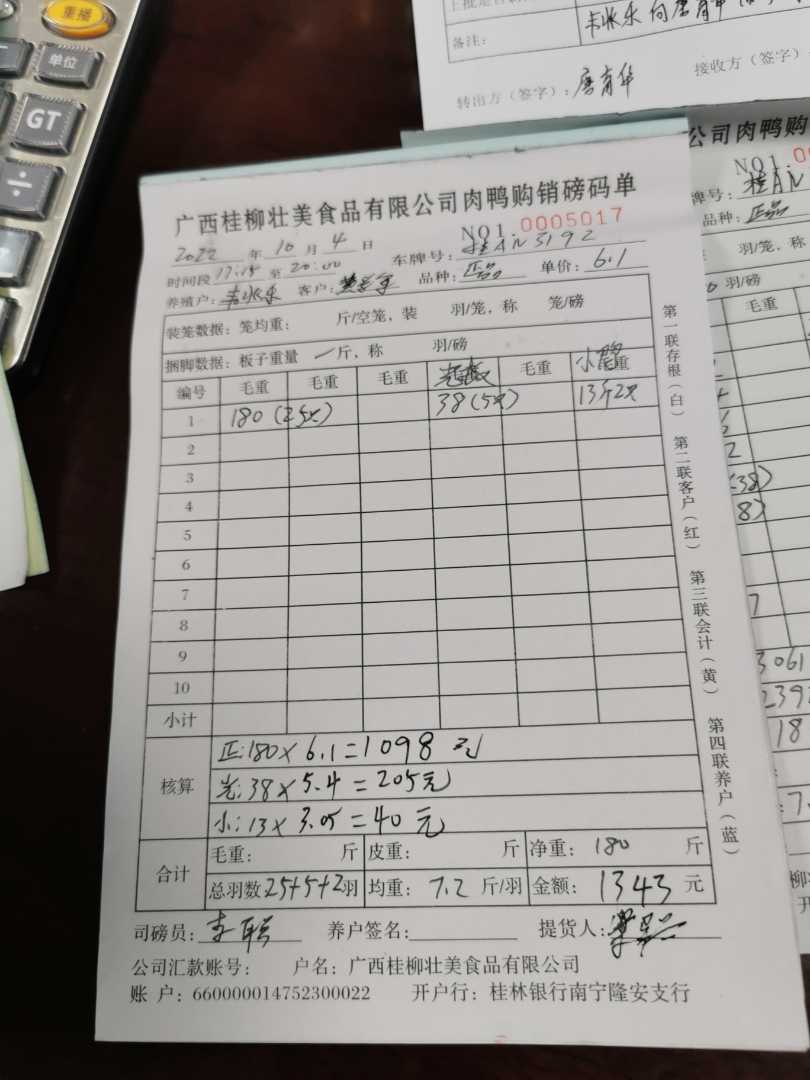 重播
单位
GT
÷
备注：
转出方（签字）：唐育华 接收方（签字）
公司肉鸭购
NO1.
牌号：桂AN
品种：正品
羽/笼，称
羽/磅
毛重
3061
广西桂柳壮美食品有限公司肉鸭购销磅码单
NO1.0005017
2022 年 10 月 4 日 车牌号：桂AN5192
时间段 17:15 至 20:00 品种：正品 单价：6.1
养殖户： 客户：
装笼数据：笼均重： 斤/空笼，装 羽/笼，称 笼/磅
捆脚数据：板子重量 斤，称 羽/磅
编号 毛重 毛重 毛重 毛重
1 180（25只） 38（5只） 13斤2只
2
3
4
5
6
7
8
9
10
小计
核算
正：180×6.1=1098元
光：38×5.4=205元
小：13×3.05=40元
合计 毛重： 斤 皮重： 斤 净重：180 斤
总羽数 25+5+2羽 均重：7.2 斤/羽 金额：1343 元
司磅员： 养户签名： 提货人：
公司汇款账号： 户名：广西桂柳壮美食品有限公司
账 户：660000014752300022 开户行：桂林银行南宁隆安支行
第一联存根（白） 第二联客户（红） 第三联会计（黄） 第四联养户（蓝）